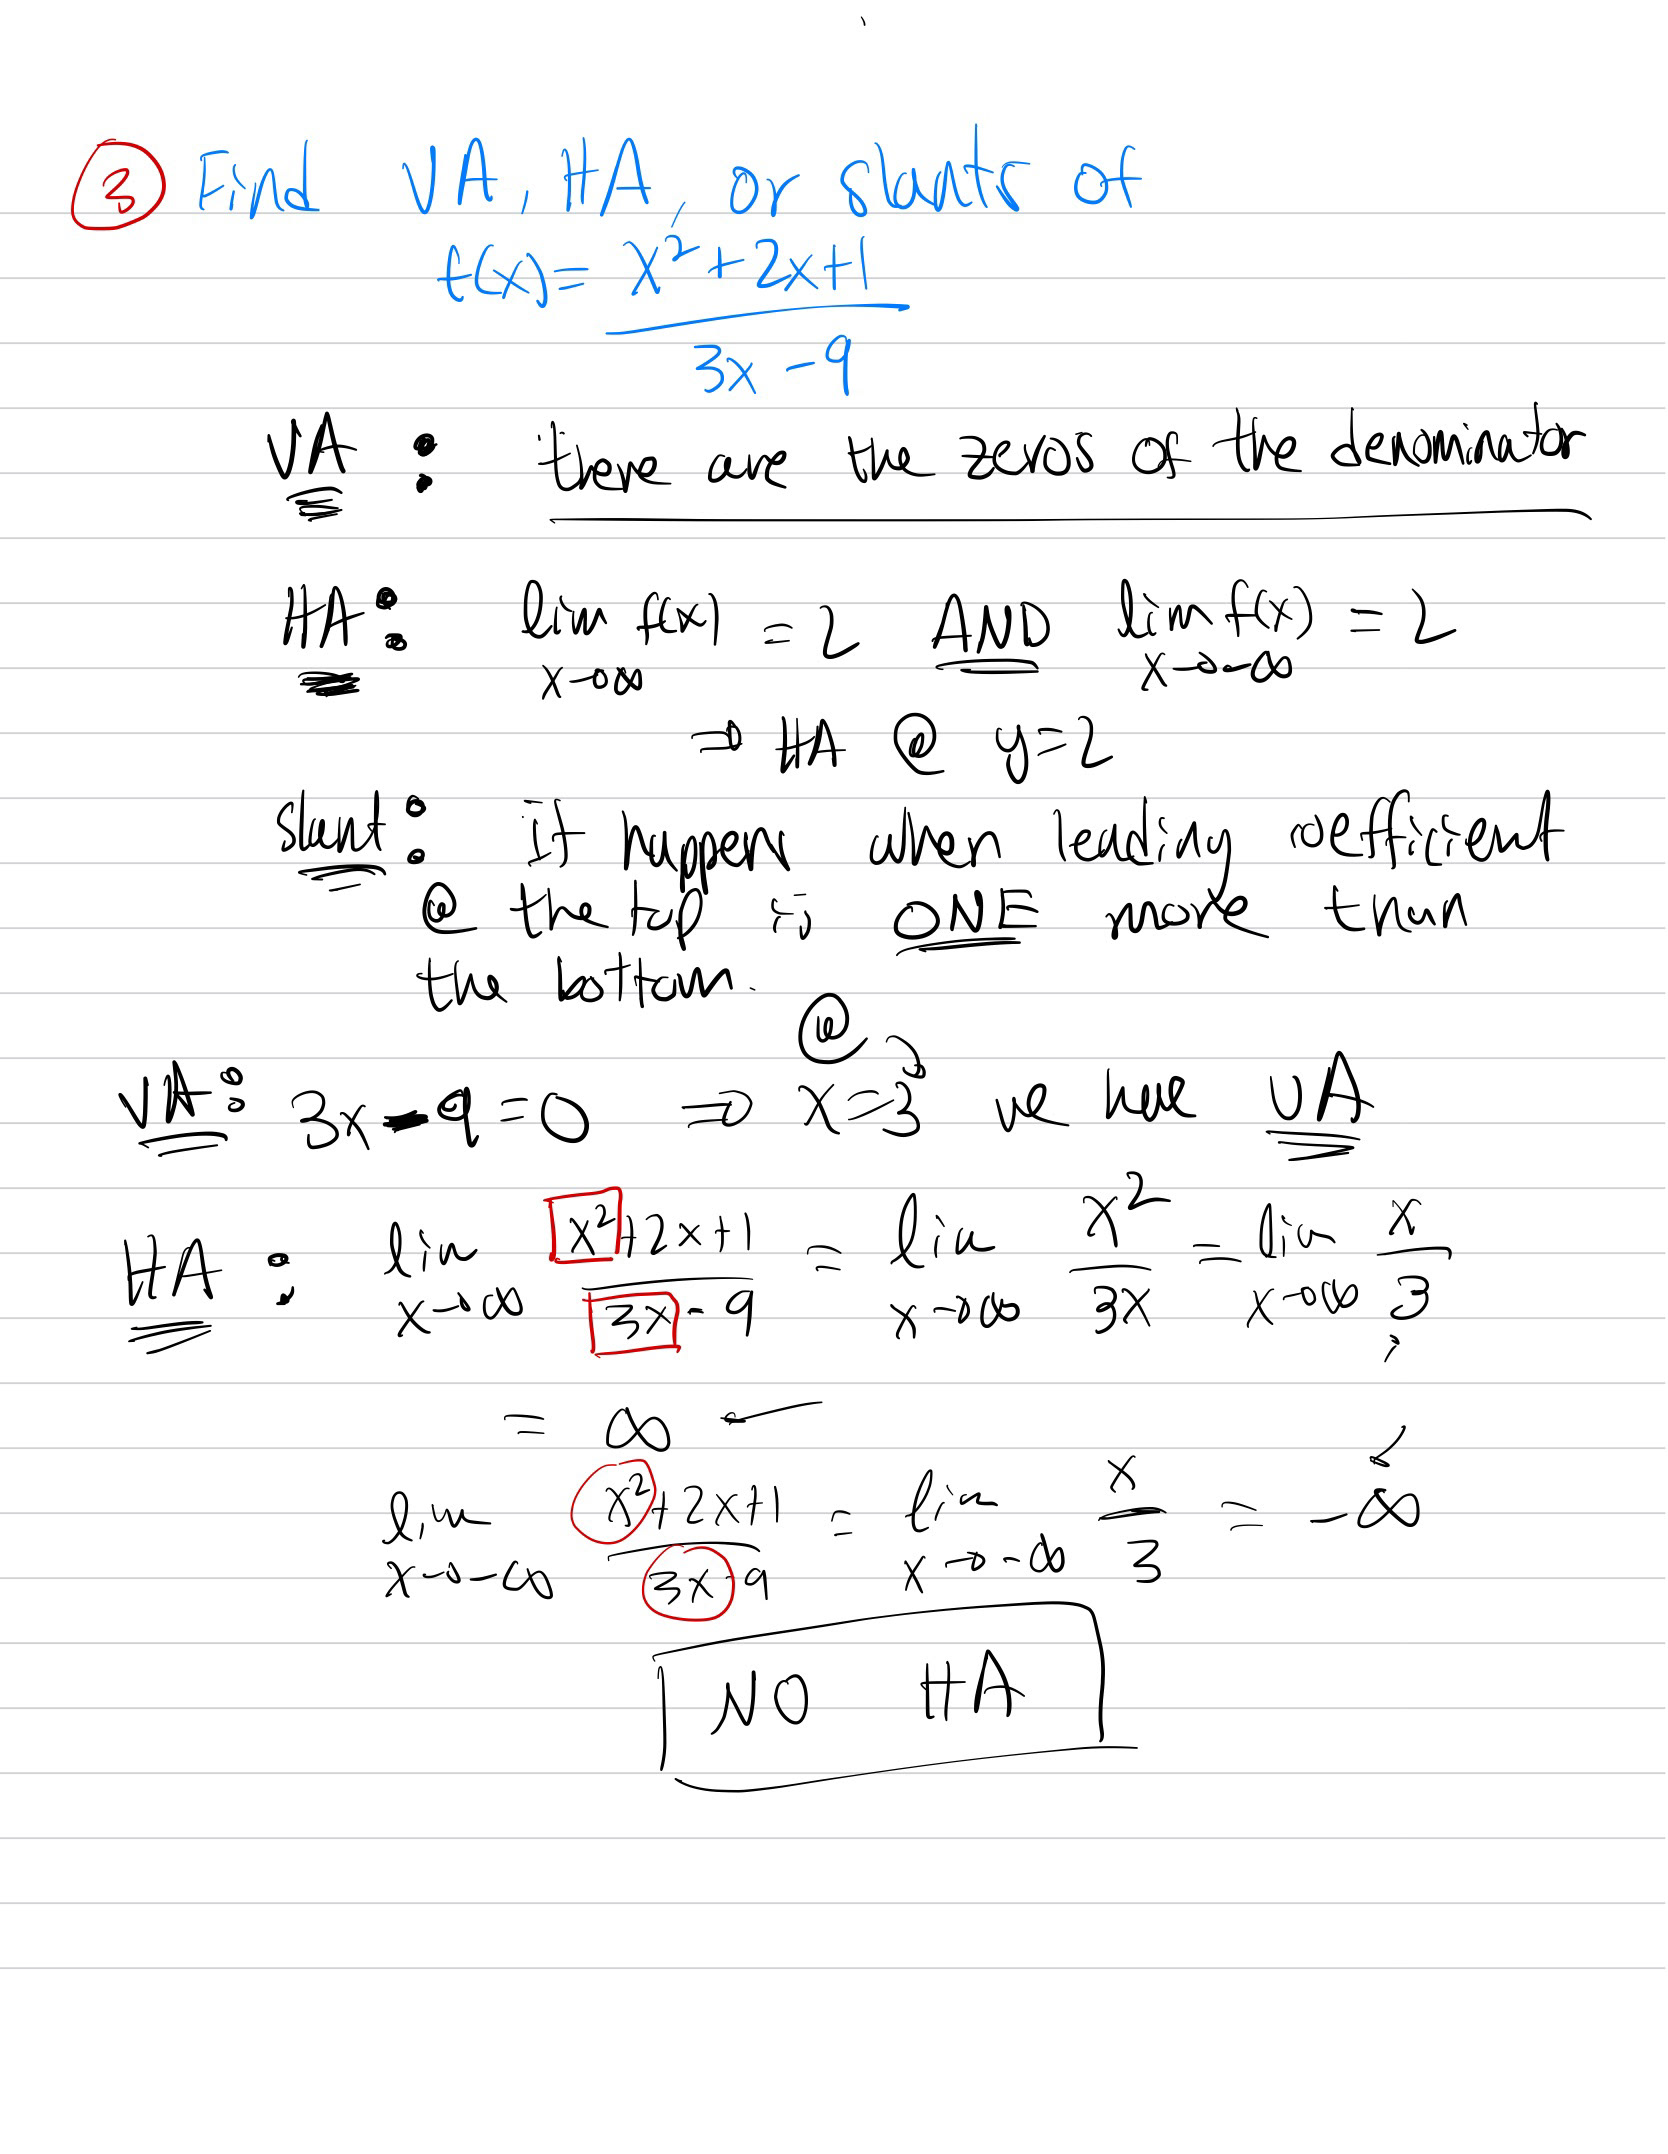 3 Find VA, HA, or slants of
f(x) = x² + 2x + 1
3x - 9
VA : there are the zeros of the denominator
HA : lim f(x) = 2 AND lim f(x) = 2
x→∞ x→-∞
⇒ HA @ y = 2
slant : it happens when leading coefficient
@ the top is ONE more than
the bottom.
@
VA : 3x - 9 = 0 ⇒ x = 3 we have VA
HA : lim x² + 2x + 1 = lim x² = lim x
x→∞ 3x - 9 x→∞ 3x x→∞ 3
= ∞
lim x² + 2x + 1 = lim x = -∞
x→-∞ 3x 9 x→-∞ 3
NO HA